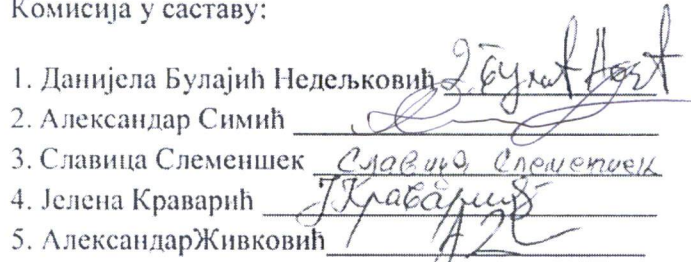 Комисија у саставу:
1. Данијела Булајић Недељковић
2. Александар Симић
3. Славица Слеменшек Славица Слеменшек
4. Јелена Краварић ЈКраварић
5. АлександарЖивковић